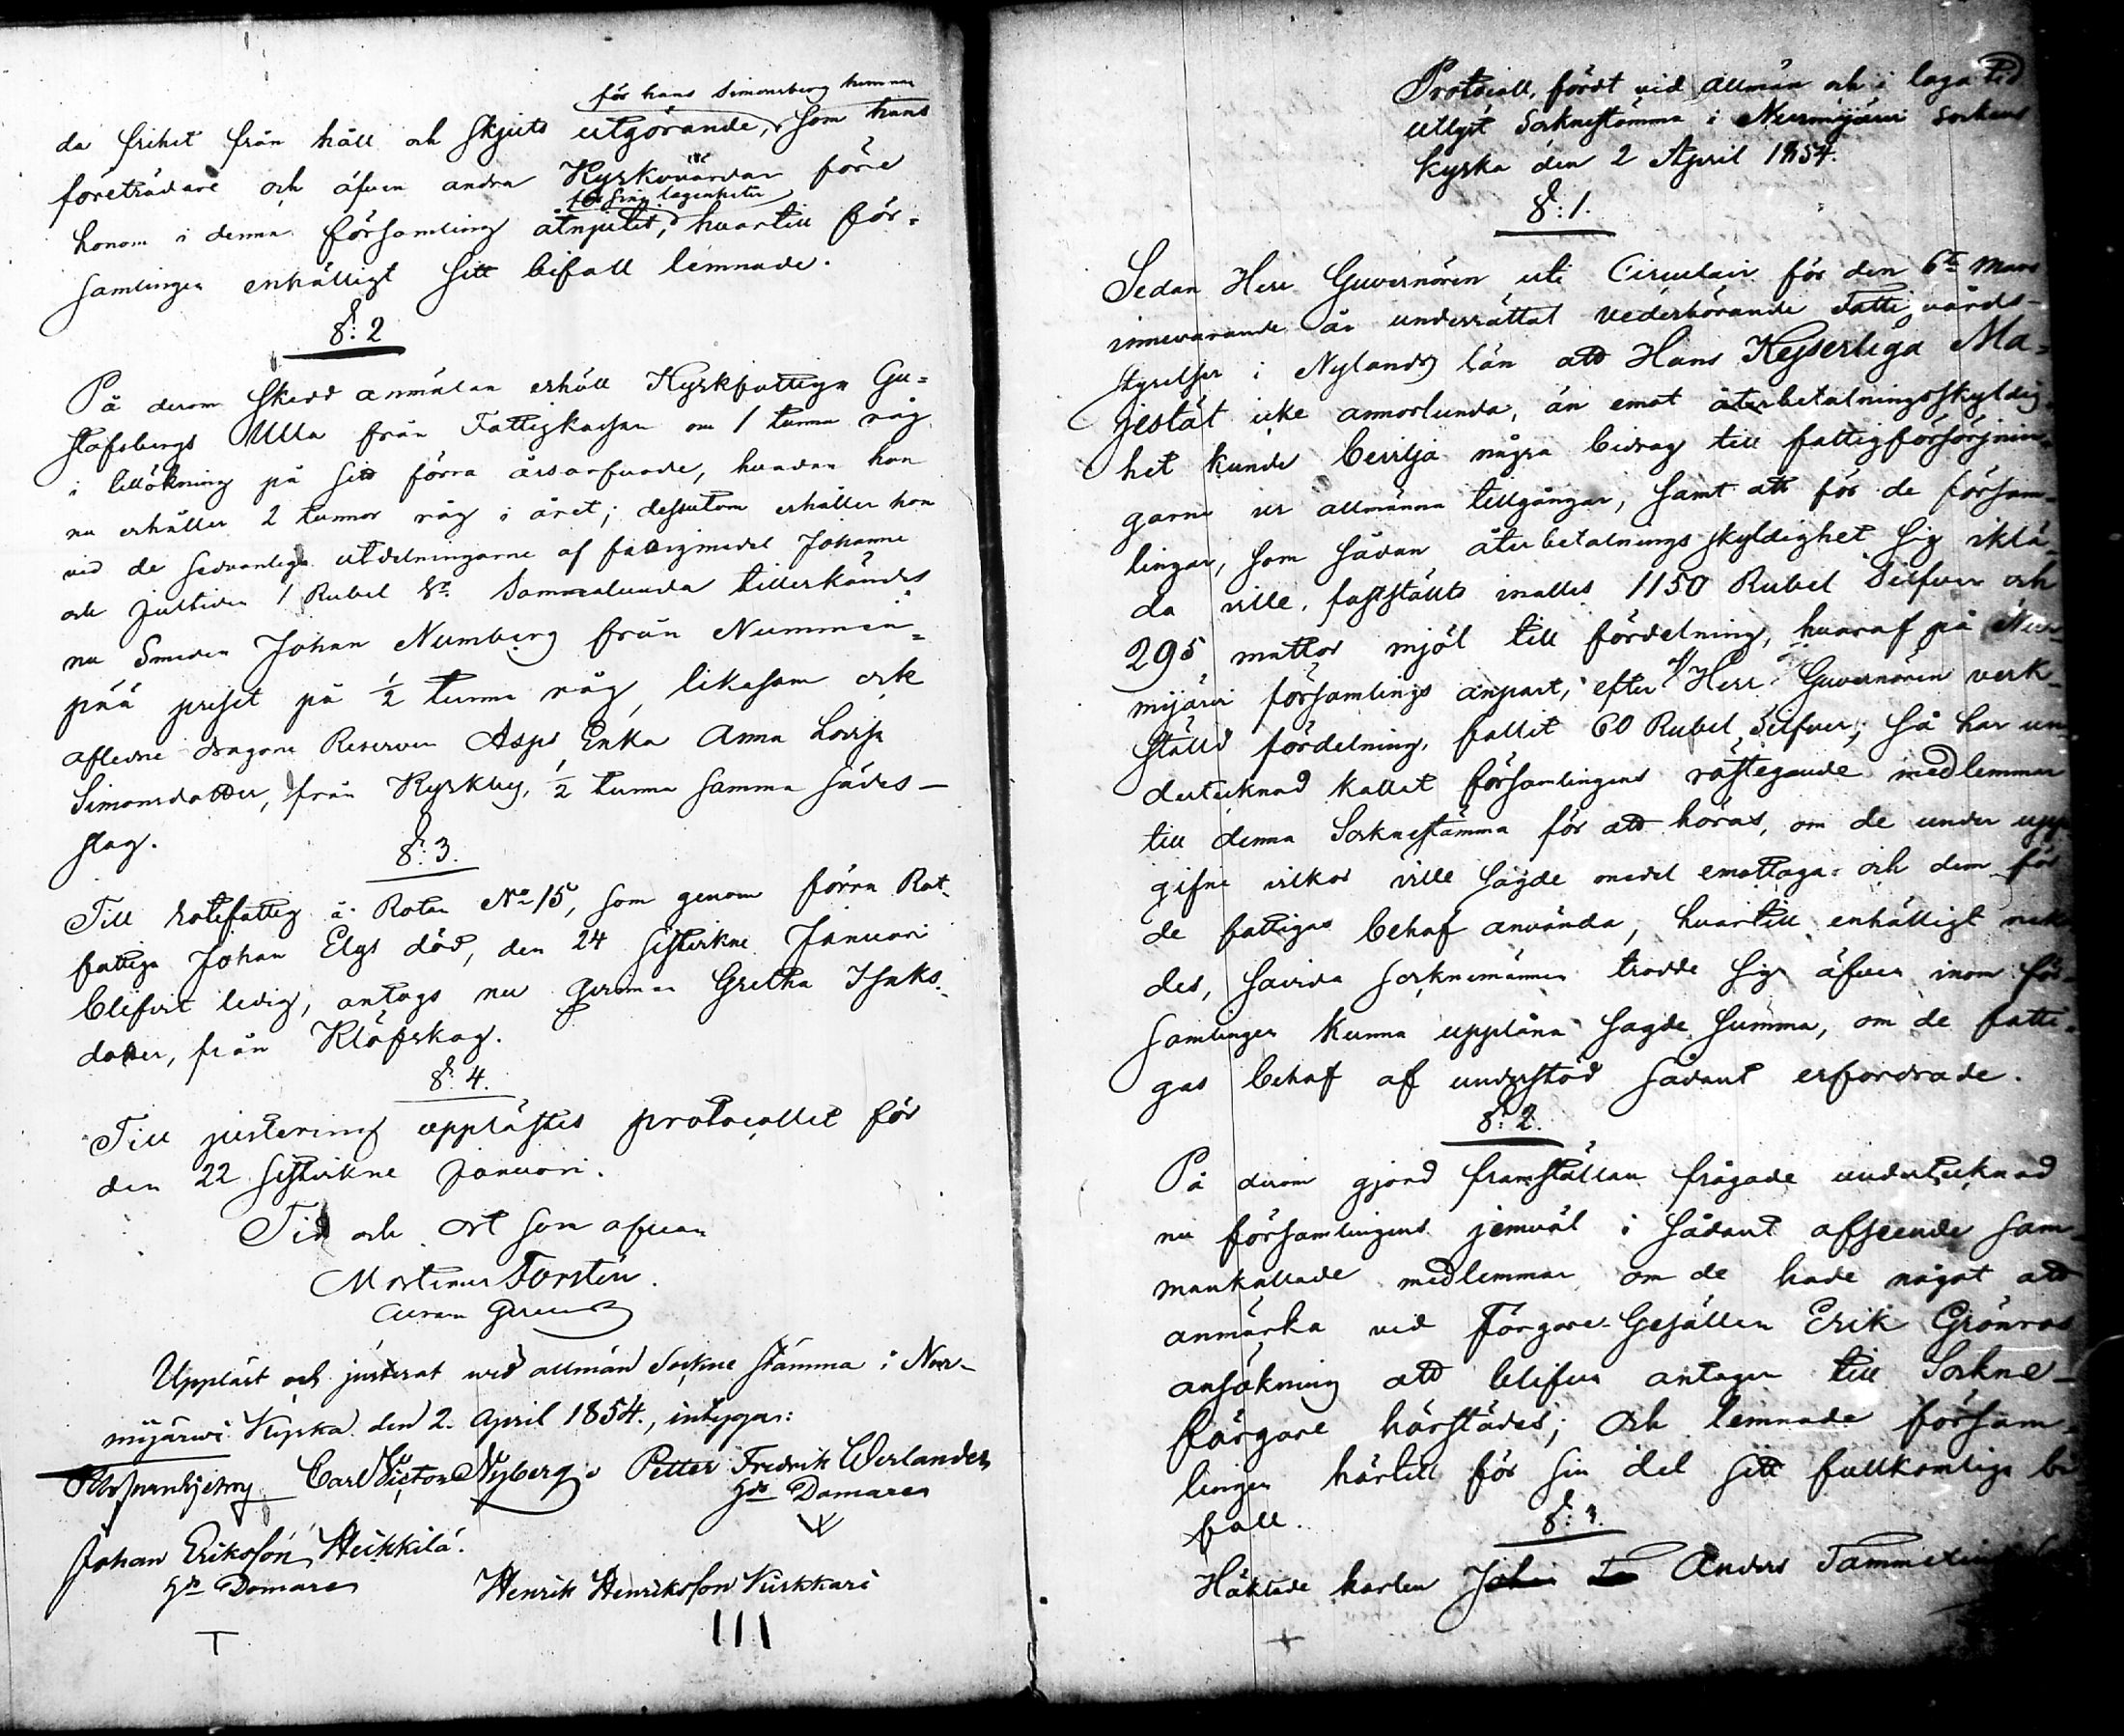 för hans Simonsberg hemman
da frihet från håll och skjuts utgörande, som hans
företrädare och äfven andra Kyrkovärdar före
för sina lägenheter
honom i denna församling åtnjutit, hvartill för=
samlingen enhälligt sitt bifall lemnade.
§: 2
På derom skedd anmälan erhöll Kyrkfattiga Gu=
stafsbergs Ulla från Fattigkassan om 1 tunna råg
i tillökning på sitt förra årsarfvode, hvadan hon
nu erhåller 2 tunnor råg i året; dessutom erhåller hon
vid de sedvanliga utdelningarne af fattigmedel Johanne
och Jultiden 1 Rubel Sr. Sammalunda tillerkändes
nu Smeden Johan Numberg från Nummen=
pää priset på ½ tunna råg, likasom ock
aflidne dragone Reserven Asps Enka Anna Lovisa
Simonsdotter, från Kyrkby, ½ tunna samma sädes-
slag.
§: 3.
Till rotefattig å Rotan No 15, som genom förra Rot-
fattiga Johan Elgs död, den 24 sistvikne Januari
blifvit ledig, antogs nu Gretha Isaks-
dotter, från Klöfskog.
§: 4.
Till justering upplästes protocollet för
den 22 sistvikne Januari.
Tid och ort som ofvan
Mortimer Forstén.
Uppläst och justerat wid allmän Sockne stämma i Nur-
mijärwi Kyrka den 2. April 1854., intygar:
Carl Victor Nyberg. Petter Fredrik Werlander
Hds Domare
Johan Eriksson Heikkilä.
Hds Domare
Henrik Henriksson Kirkkari
Protocoll, fördt vid allmän och i laga tid
utlyst Sockenstämma i Nurmijärvi sockens
kyrka den 2 April 1854.
§: 1.
Sedan Herr Guvernören uti Circulair för den 6te Mars
innevarande år underrättat vederbörande Fattigvårds-
styrelser i Nylands län att Hans Kejserliga Ma=
jestät icke annorlunda, än emot återbetalningsskyldig-
het kunde bevilja några bidrag till fattigförsörjnin-
garne ur allmänna tillgångar, samt att för de försam-
lingar, som sådan återbetalnings skyldighet sig iklä-
da ville, fastställts inalles 1150 Rubel Silfver och
295 mattor mjöl till fördelning, hvaraf på Nur-
mijärvi församlings anpart, efter af Herr Guvernören verk-
ställd fördelning, fallit 60 Rubel Silfver; så har un-
dertecknad kallat församlingens röstegande medlemmar
till denna Sockenstämma för att höras, om de under upp-
gifne vilkor ville sagde medel emottaga och dem för
de fattigas behof använda, hvartill enhälligt neka-
des, sockenmännen trodde sig äfven inom för-
samlingen kunna upplåna sagde summa, om de fatti=
gas behof af understöd sådant erfordrade.
§: 2.
På derom gjord framställan frågade undertecknad
nu församlingens jemväl i sådant afseende sam-
mankallade medlemmar om de hade något att
anmärka vid Färgare-Gesällen Erik Grönroos
ansökning att blifva antagen till Sockne-
färgare härstädes; och lemnade försam-
lingen härtill för sin del sitt fullkomliga bi-
fall.
§: 3.
Häktade karlen Anders